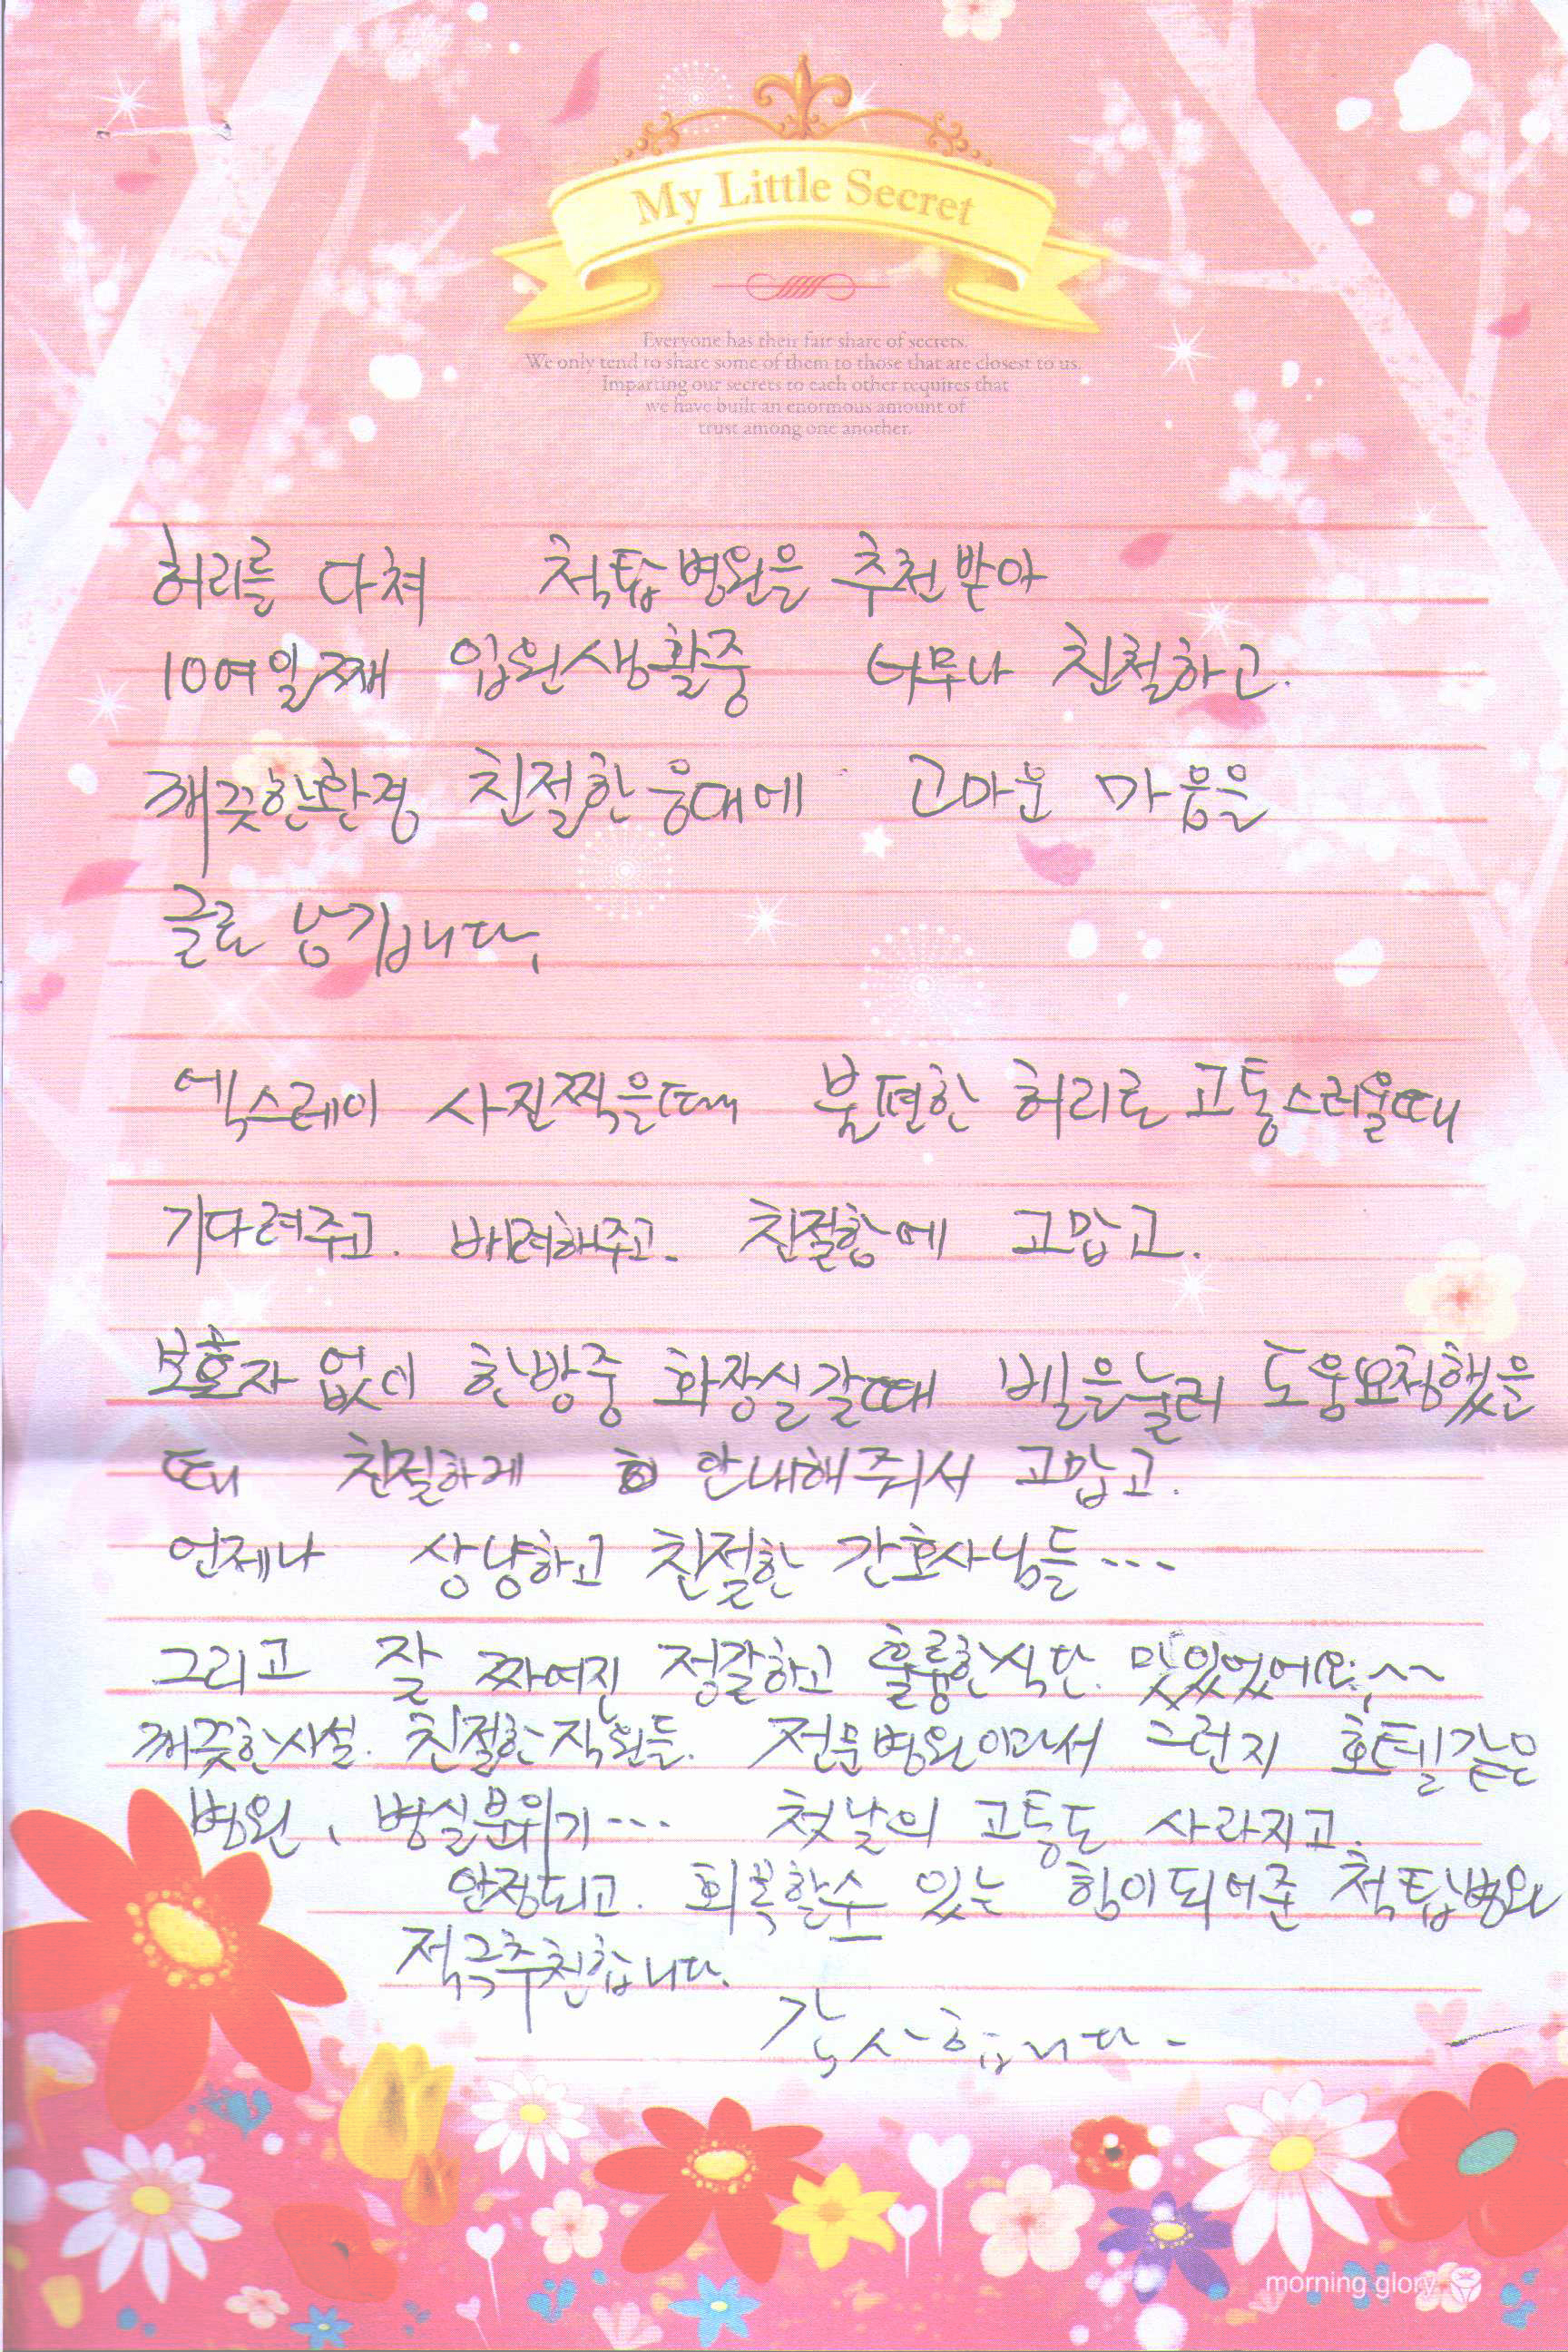 My Little Secret
Everyone has their fair share of secrets.
We only tend to share some of them to those that are closest to us.
Imparting our secrets to each other requires that
we have built an enormous amount of
trust among one another.
허리를 다쳐 척탑병원을 추천받아
10여일째 입원생활중 너무나 친철하고.
깨끗한환경 친절한응대에 고마운 마음을
글로 남기입니다,
엑스레이 사진찍을때 불편한 허리로 고통스러울때
기다려주고. 배려해주고. 친절함에 고맙고.
보호자 없이 한밤중 화장실갈때 벨을눌러 도움요청했을
때 친절하게 안내해주셔서 고맙고.
언제나 상냥하고 친절한 간호사님들...
그리고 잘 짜여진 정갈하고 훌륭한식단. 맛있었어요.^^
깨끗한시설. 친절한직원들. 전문병원이라서 그런지 호텔같은
병원, 병실분위기... 첫날의 고통도 사라지고.
안정되고. 회복할수 있는 힘이되어준 척탑병원
적극추천합니다.
감사합니다.
morning glory